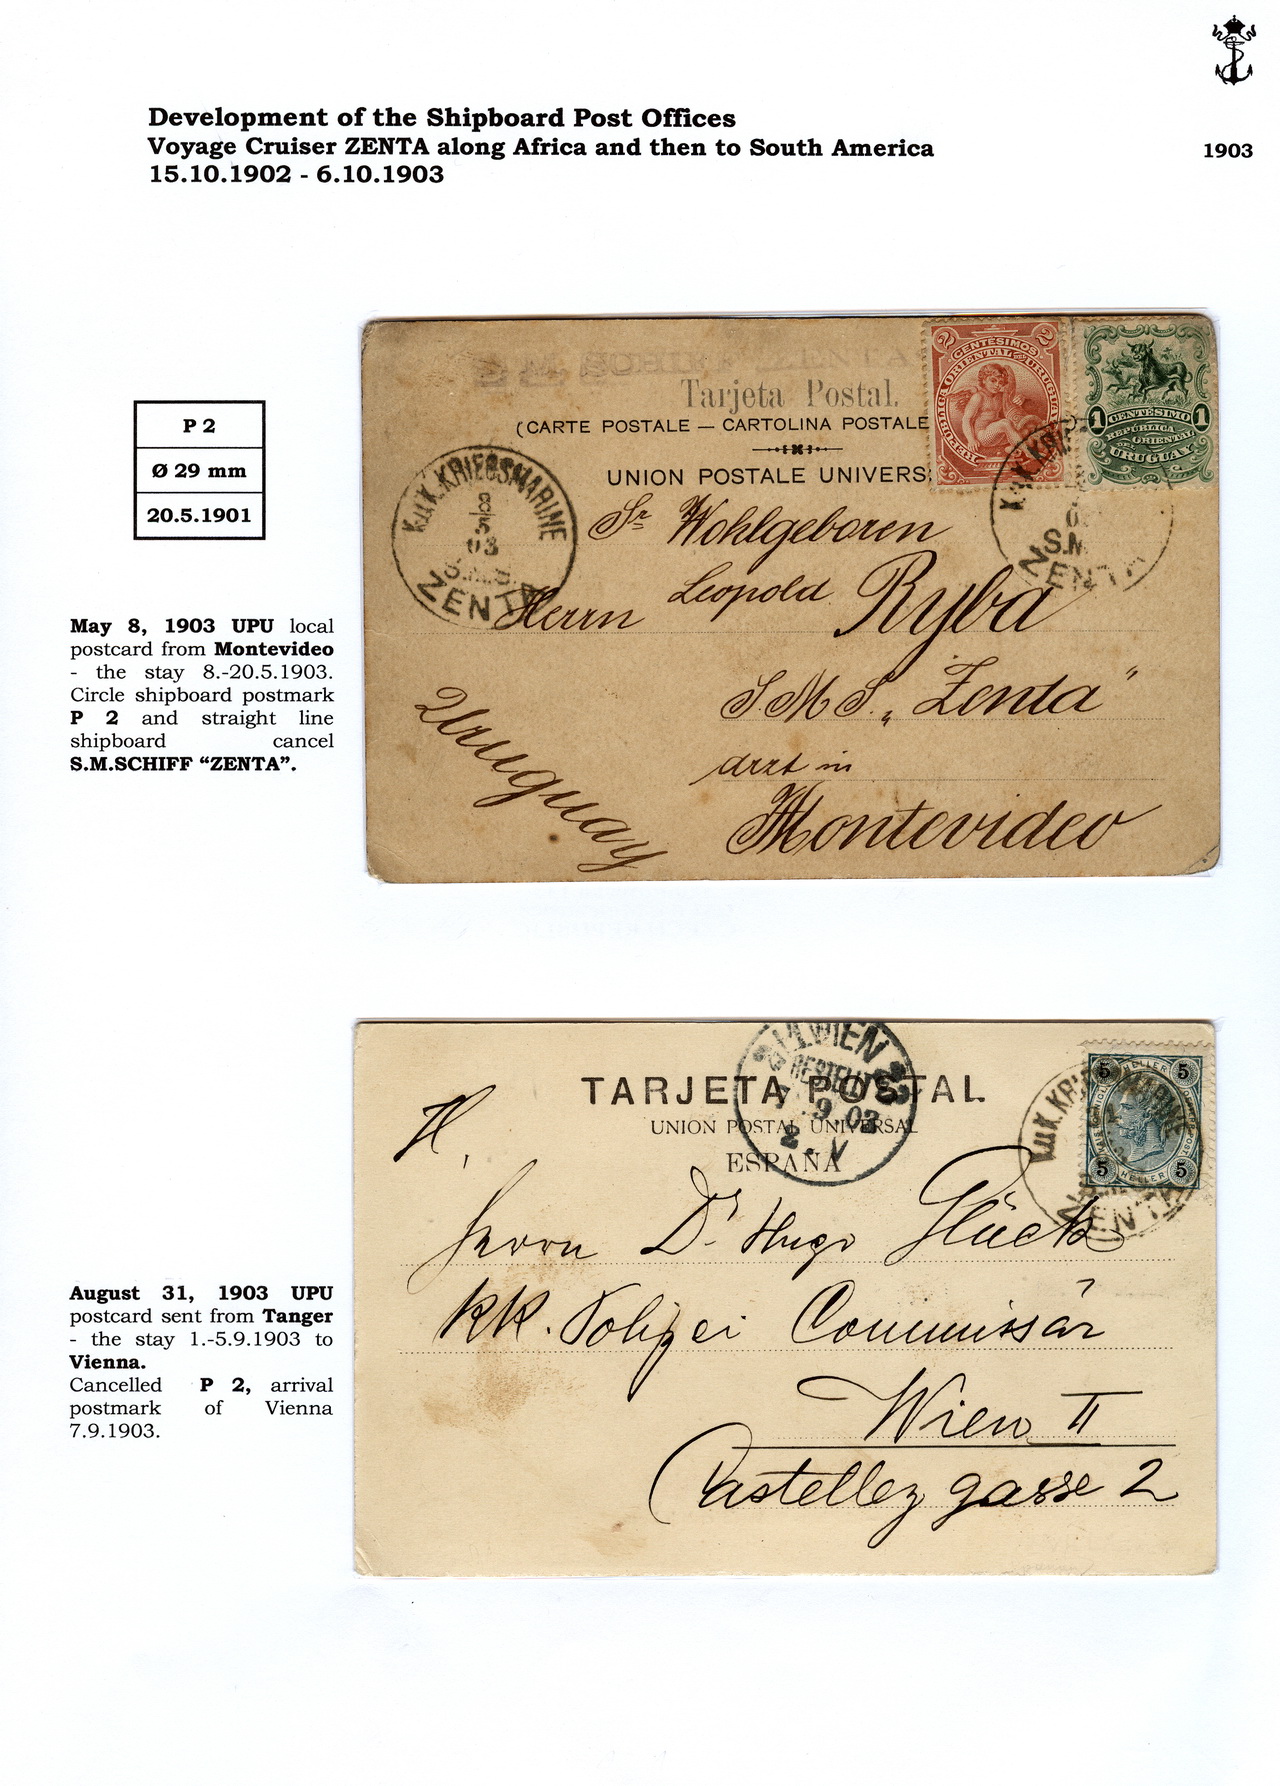 Development of the Shipboard Post Offices
Voyage Cruiser ZENTA along Africa and then to South America
1903
15.10.1902 - 6.10.1903
P 2
Ø 29 mm
20.5.1901
May 8, 1903 UPU local
postcard from Montevideo
- the stay 8.-20.5.1903.
Circle shipboard postmark
P 2 and straight line
shipboard cancel
S.M.SCHIFF “ZENTA”.
S.M. SCHIFF ZENTA
Tarjeta Postal.
(CARTE POSTALE — CARTOLINA POSTALE
UNION POSTALE UNIVERS
2 2
CENTÉSIMOS
REPUBLICA ORIENTAL DEL URUGUAY
1 CENTÉSIMO 1
REPÚBLICA
ORIENTAL
DEL
URUGUAY
K.u.K. KRIEGSMARINE
8
5
03
S.M.S.
ZENTA
K.u.K. KRI
S.M
ZENTA
Sr Wohlgeboren
Herrn Leopold Ryba
S.M.S. „Zenta”
arzt in
Montevideo
Uruguay
August 31, 1903 UPU
postcard sent from Tanger
- the stay 1.-5.9.1903 to
Vienna.
Cancelled P 2, arrival
postmark of Vienna
7.9.1903.
TARJETA POSTAL
UNION POSTAL UNIVERSAL
ESPAÑA
WIEN
BESTELLT
7. 9 03
2. V
5 HELLER 5
5 HELLER 5
K.u.K. KRIEGSMARINE
ZENTA
H.
Herrn Dr. Hugo Glück
kk. Polizei Commissär
Wien II
Castellezgasse 2